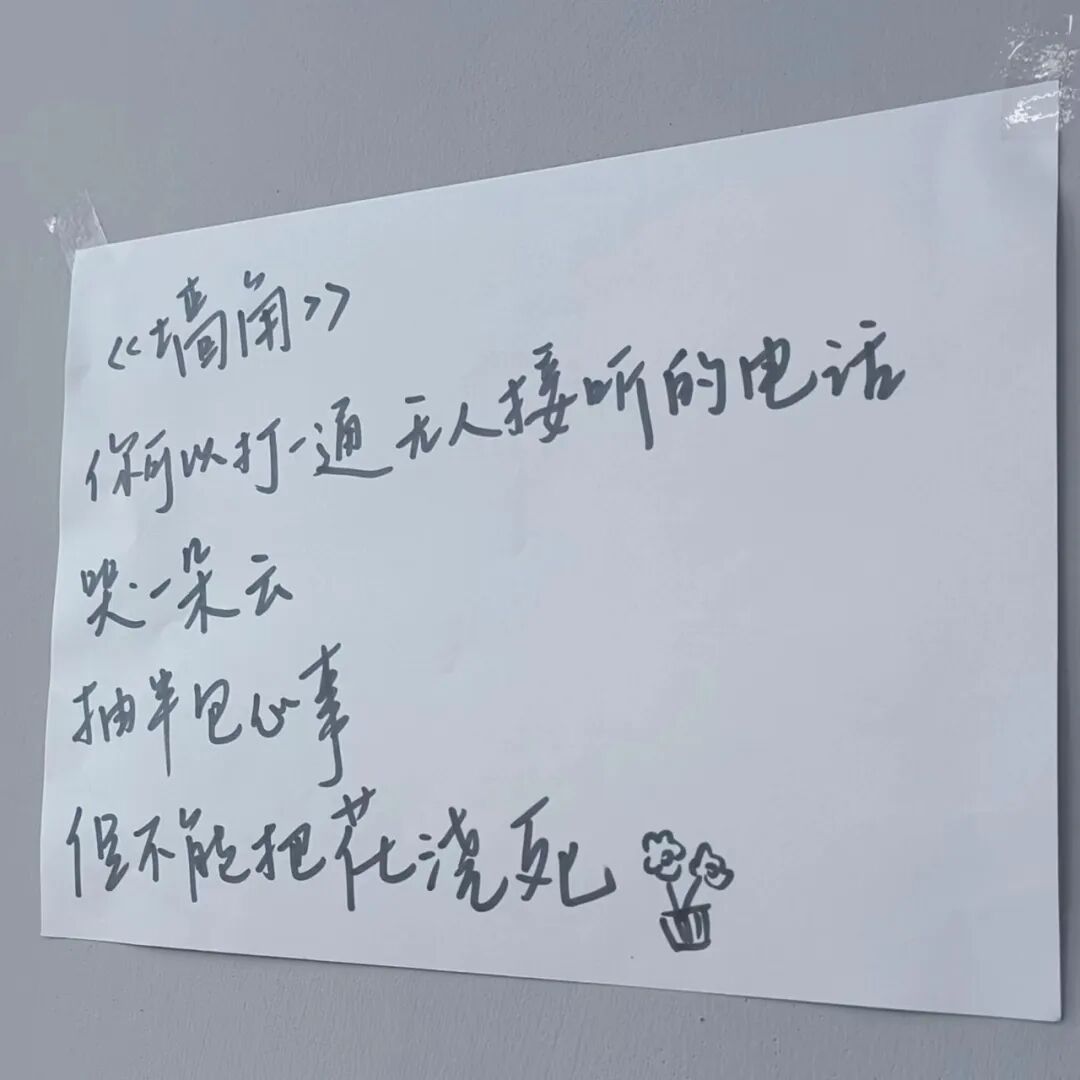 《墙角》
你可以打一通无人接听的电话
哭一朵云
抽半包心事
但不能把花浇死